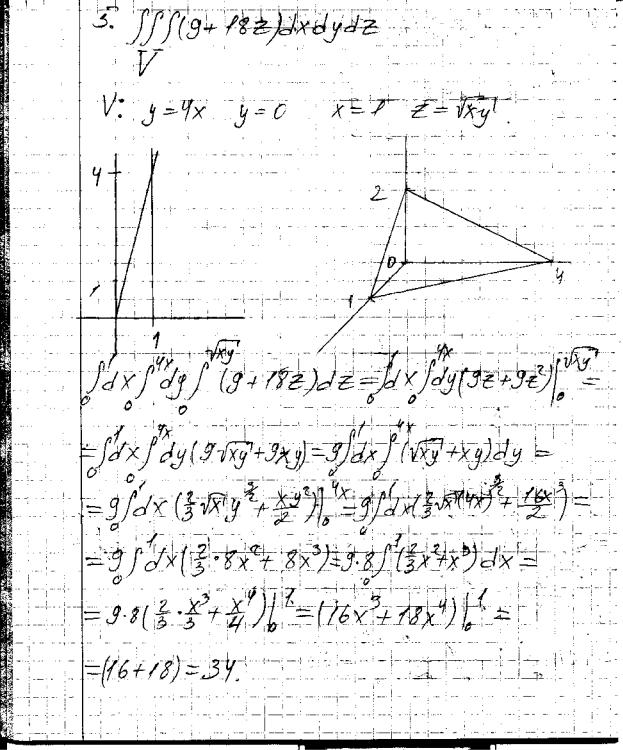 3. ∫∫∫(9+18z)dxdydz
V
V: y=4x y=0 x=1 z=√xy
4
1
1
2
0
1
4
₀∫¹dx ₀∫⁴ˣdy ₀∫^√xy (9+18z)dz = ₀∫¹dx ₀∫⁴ˣdy(9z+9z²)|₀^√xy =
= ₀∫¹dx ₀∫⁴ˣdy(9√xy+9xy) = 9 ₀∫¹dx ₀∫⁴ˣ(√xy+xy)dy =
= 9 ₀∫¹dx(2/3 √x y^(3/2) + xy²/2)|₀⁴ˣ = 9 ₀∫¹dx(2/3 √x (4x)^(3/2) + 16x³/2) =
= 9 ₀∫¹dx(2/3·8x²+8x³) = 9·8 ₀∫¹(2/3x²+x³)dx =
= 9·8(2/3·x³/3+x⁴/4)|₀¹ = (16x³+18x⁴)|₀¹ =
= (16+18) = 34.